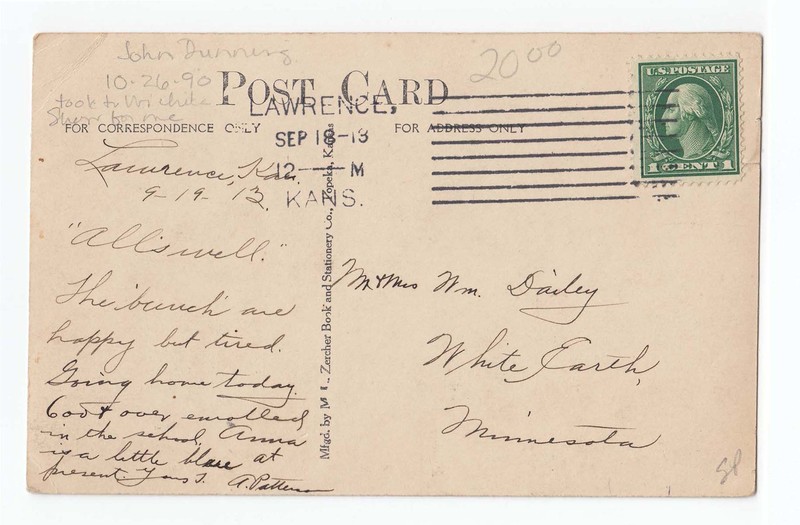 John Dunning
10-26-90
took to Wichita
Show for me
20 00
POST CARD
FOR CORRESPONDENCE ONLY
FOR ADDRESS ONLY
LAWRENCE,
SEP 18-13
12 — M
KANS.
U.S. POSTAGE
1 CENT 1
Lawrence, Kan.
9-19-13
"All's well."
The 'bunch' are
happy but tired.
Going home today.
600 & over enrolled
in the school. Anna
is a little blue at
present. Yours
A. Patterson
Mfgd. by Zercher Book and Stationery Co., Topeka, Kans.
Mr & Mrs Wm. Dailey
White Earth,
Minnesota